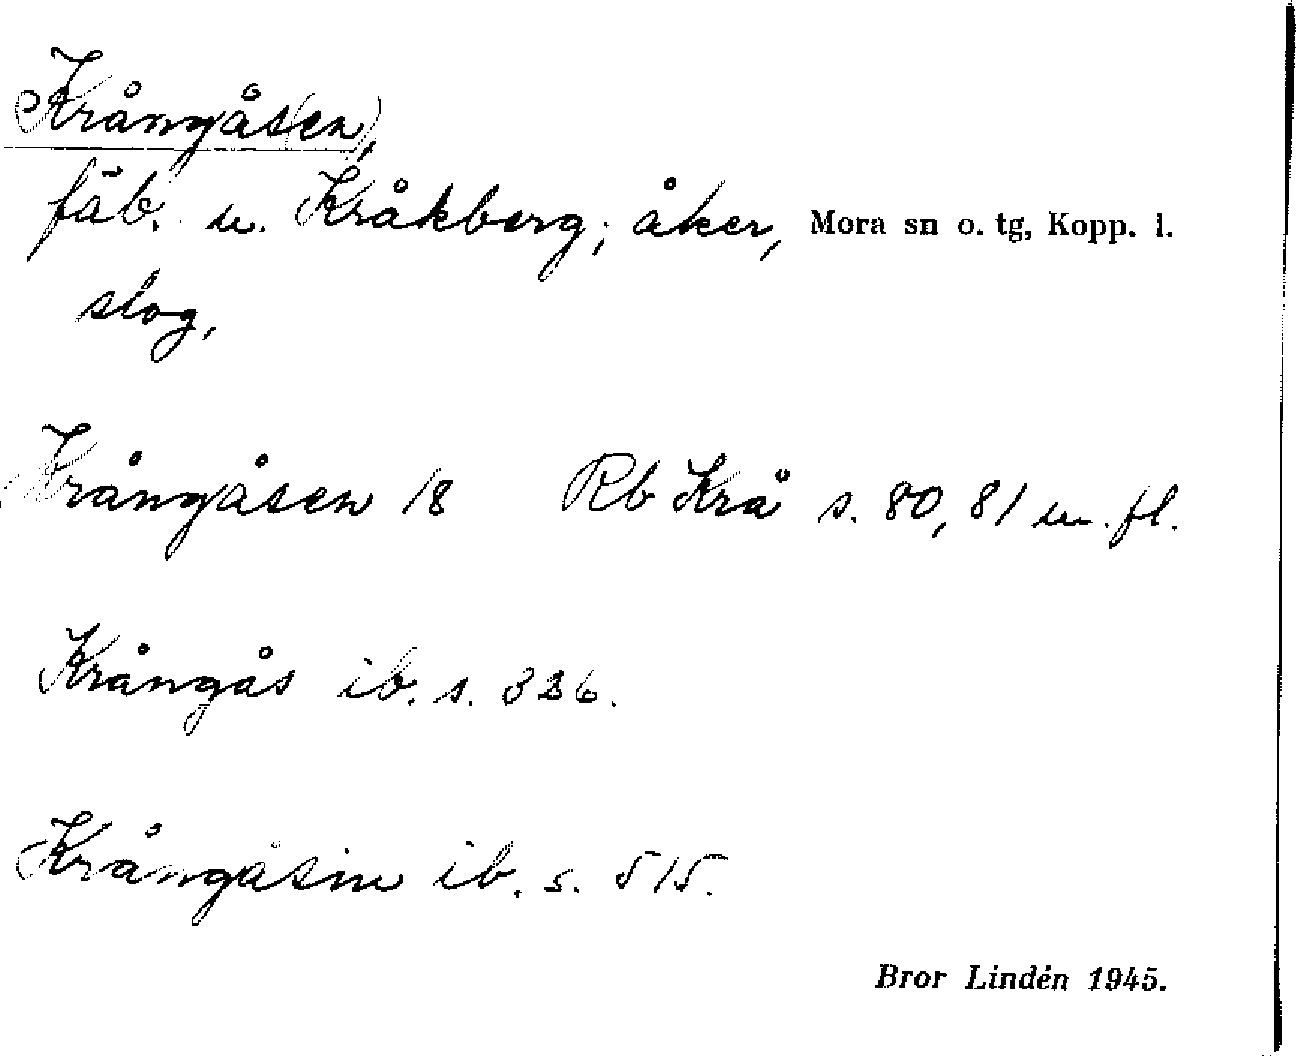 Krångås(en),
fäb. u. Kråkberg; åker, Mora sn o. tg, Kopp. l.
slog,
Krångåsen 18 Rb Krå s. 80, 81 m. fl.
Krångås ib. s. 326.
Krångåsin ib. s. 515.
Bror Lindén 1945.